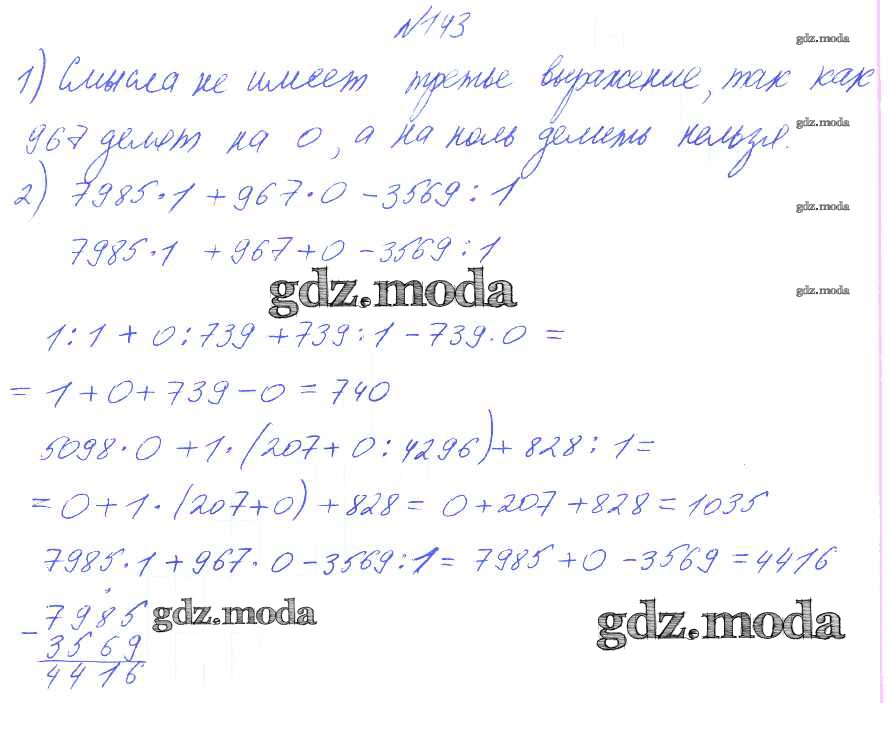 №143
gdz.moda
1) Смысла не имеет третье выражение, так как
967 делят на 0, а на ноль делить нельзя.
gdz.moda
2) 7985·1 + 967·0 - 3569 : 1
gdz.moda
7985·1 + 967 + 0 - 3569 : 1
gdz.moda
gdz.moda
1 : 1 + 0 : 739 + 739 : 1 - 739·0 =
= 1 + 0 + 739 - 0 = 740
5098·0 + 1·(207 + 0 : 4296) + 828 : 1 =
= 0 + 1·(207 + 0) + 828 = 0 + 207 + 828 = 1035
7985·1 + 967·0 - 3569 : 1 = 7985 + 0 - 3569 = 4416
- 7985
3569
4416
gdz.moda
gdz.moda